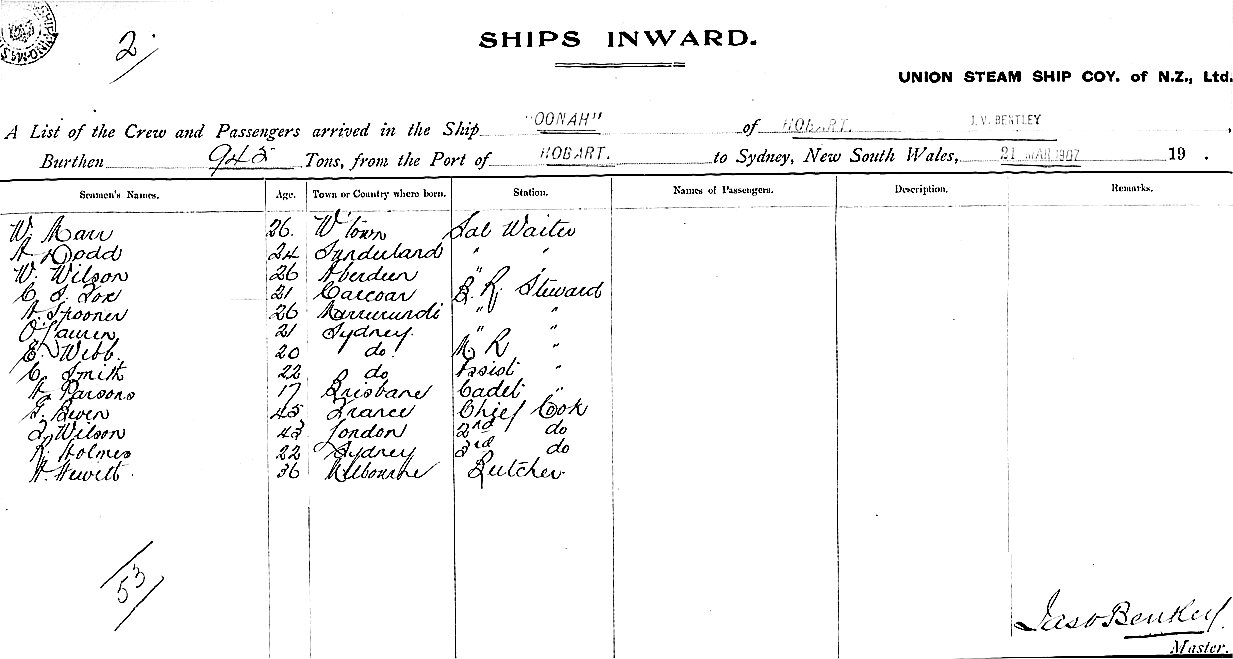 2.
SHIPS INWARD.
UNION STEAM SHIP COY. of N.Z., Ltd.
A List of the Crew and Passengers arrived in the Ship "OONAH" of HOBART. J.V. BENTLEY,
Burthen 945 Tons, from the Port of HOBART. to Sydney, New South Wales, 21 MAR 1907 19 .
Seamen's Names. Age. Town or Country where born. Station. Names of Passengers. Description. Remarks.
W. Marr 26. W'Town Sal Waiter
A Dodd 24 Sunderland " "
W. Wilson 26 Aberdeen "
C. S. Fox 21 Carcoar B. R. Steward
A. Spooner 26 Murrurundi " "
21 Sydney " "
E. Webb. 20 do. M. R "
C. Smith 22 do Assist "
A. Parsons 17 Brisbane Cadet "
43 France Chief Cook
Wilson 43 London 2nd do
R. Holmes 22 Sydney 3rd do
A. Hewett 36 Melbourne Butcher
53
Master.